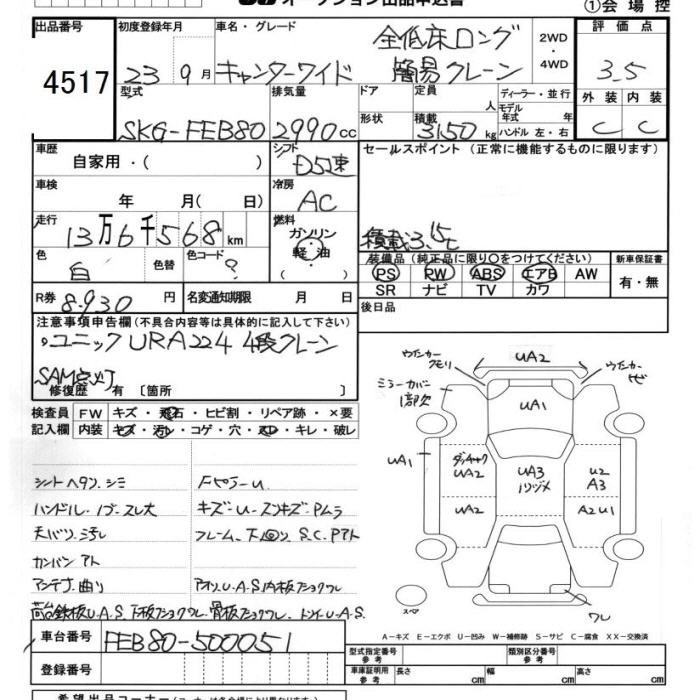 オークション出品申込書
①会場控
出品番号 初度登録年月 車名・グレード 2WD・4WD 評価点
4517 23 9月 キャンターワイド 全低床ロング 簡易クレーン 3.5
型式 排気量 ドア 定員 人 ディーラー・並行 外装 内装
SKG-FEB80 2990cc 形状 積載 3150kg モデル年式 年 ハンドル 左・右 C C
車歴 自家用・( ) シフト D5速 セールスポイント(正常に機能するものに限ります)
車検 年 月(日) 冷房 AC
走行 13万6千568km 燃料 ガソリン・軽油 積載3.15t
色 白 色替 色コード ? 装備品(純正品に限り○をつけてください) 新車保証書
PS PW ABS エアB AW 有・無
SR ナビ TV カワ
R券 8.930円 名変通知期限 月 日 後日品
注意事項申告欄(不具合内容等は具体的に記入して下さい)
ユニックURA224 4段クレーン
SAM点灯
修復歴 有[箇所 ]
検査員 FW キズ・飛石・ヒビ割・リペア跡・×要
記入欄 内装 キズ・汚レ・コゲ・穴・スレ・キレ・破レ
シートヘタリ.シミ
ハンドル.ノブ.スレ大 キズ-U-
天バリ.汚レ フレーム.下回リ S.C.Pアト
カンバンアト
アンテナ.曲リ アオリ.U.A.S.
U.A.S
ウインカークモリ UA2 ウインカーヒビ
ミラーカバー1部欠
UA1
UA1 UA2 UA3 U2 A3
UA2 A2U1
スペア ワレ
A-キズ E-エクボ U-凹み W-補修跡 S-サビ C-腐食 XX-交換済
車台番号 FEB80-500051 型式指定番号 参考 類別区分番号 参考
登録番号 車庫証明 参考 長さ cm 幅 cm 高さ cm
希望出品コーナー